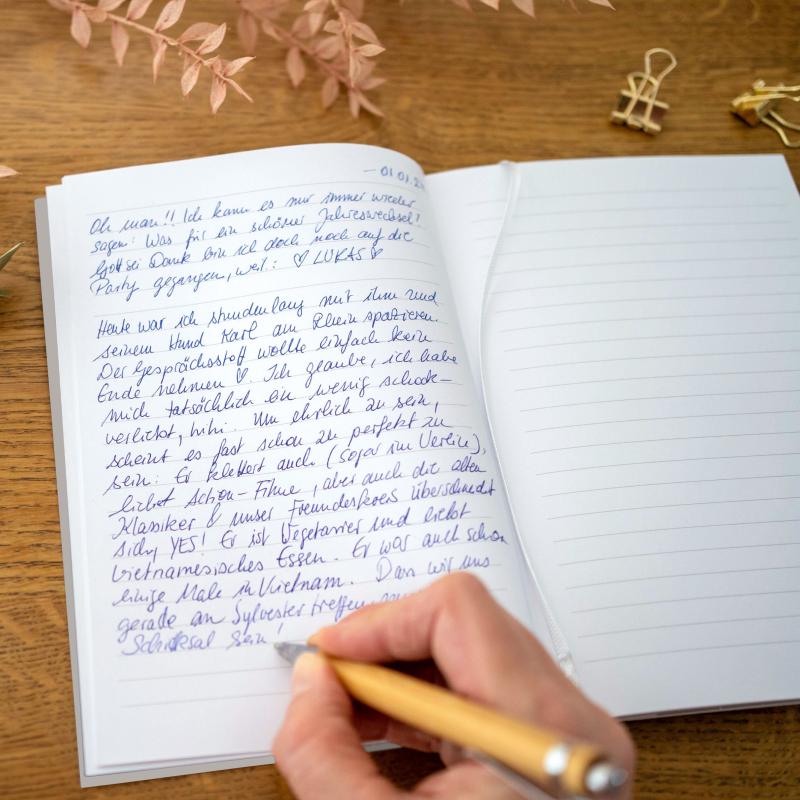 – 01.01.2
Oh man!! Ich kann es nur immer wieder
sagen: Was für ein schöner Jahreswechsel!
Gott sei Dank bin ich doch noch auf die
Party gegangen, weil: ♡ LUKAS ♡
Heute war ich stundenlang mit ihm und
seinem Hund Karl am Rhein spazieren.
Der Gesprächsstoff wollte einfach kein
Ende nehmen ♡. Ich glaube, ich habe
mich tatsächlich ein wenig schock-
verliebt, hihi. Um ehrlich zu sein,
scheint es fast schon zu perfekt zu
sein: Er klettert auch (sogar im Verein),
liebt Action-Filme, aber auch die alten
Klassiker & unser Freundeskreis überschneidet
sich, YES! Er ist Vegetarier und liebt
vietnamesisches Essen. Er war auch schon
einige Male in Vietnam. Dass wir uns
gerade an Sylvester treffen,
Schicksal sein!